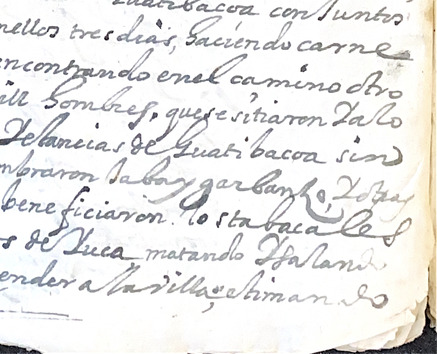 Guatibacoa con Juntos
nellos tres dias, haciendo carne
encontrando en el camino otro
mill hombres, que se sitiaron
de Guatibacoa sin
mbraron haba y garbanzo,
beneficiaron. los tabacales
s de Yuca matando
ender a la villa, estimando